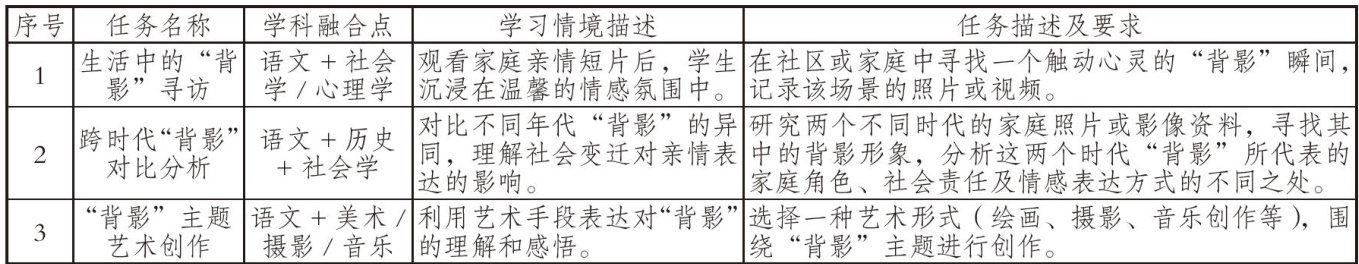 序号 任务名称 学科融合点 学习情境描述 任务描述及要求
1 生活中的“背影”寻访 语文+社会学/心理学 观看家庭亲情短片后，学生沉浸在温馨的情感氛围中。 在社区或家庭中寻找一个触动心灵的“背影”瞬间，记录该场景的照片或视频。
2 跨时代“背影”对比分析 语文+历史+社会学 对比不同年代“背影”的异同，理解社会变迁对亲情表达的影响。 研究两个不同时代的家庭照片或影像资料，寻找其中的背影形象，分析这两个时代“背影”所代表的家庭角色、社会责任及情感表达方式的不同之处。
3 “背影”主题艺术创作 语文+美术/摄影/音乐 利用艺术手段表达对“背影”的理解和感悟。 选择一种艺术形式（绘画、摄影、音乐创作等），围绕“背影”主题进行创作。